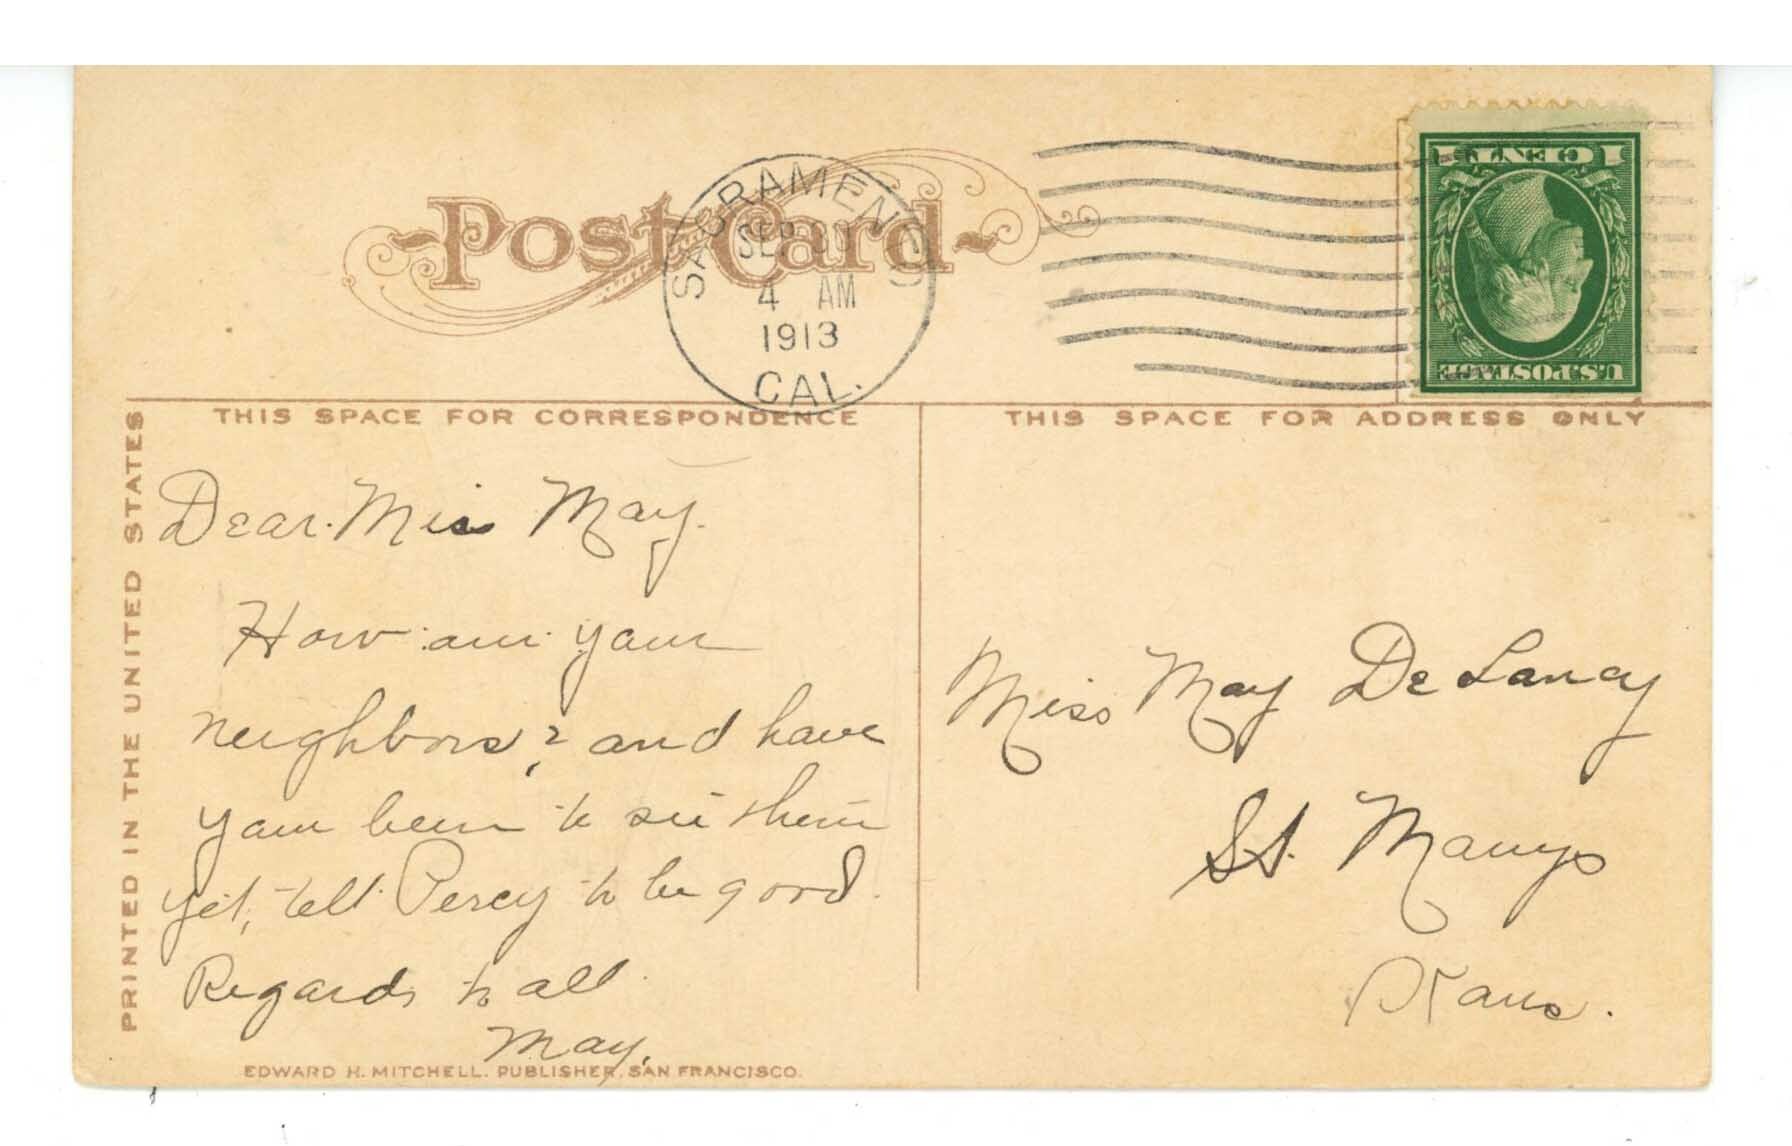 Post Card
SACRAMENTO
SEP
4 AM
1913
CAL.
1 CENT 1
U.S. POSTAGE
THIS SPACE FOR CORRESPONDENCE
THIS SPACE FOR ADDRESS ONLY
PRINTED IN THE UNITED STATES
Dear Miss May.
How are your
neighbors? and have
you been to see them
yet, tell Percy to be good.
Regards to all.
May.
Miss May De Lancy
St. Marys
Kans.
EDWARD H. MITCHELL. PUBLISHER, SAN FRANCISCO.